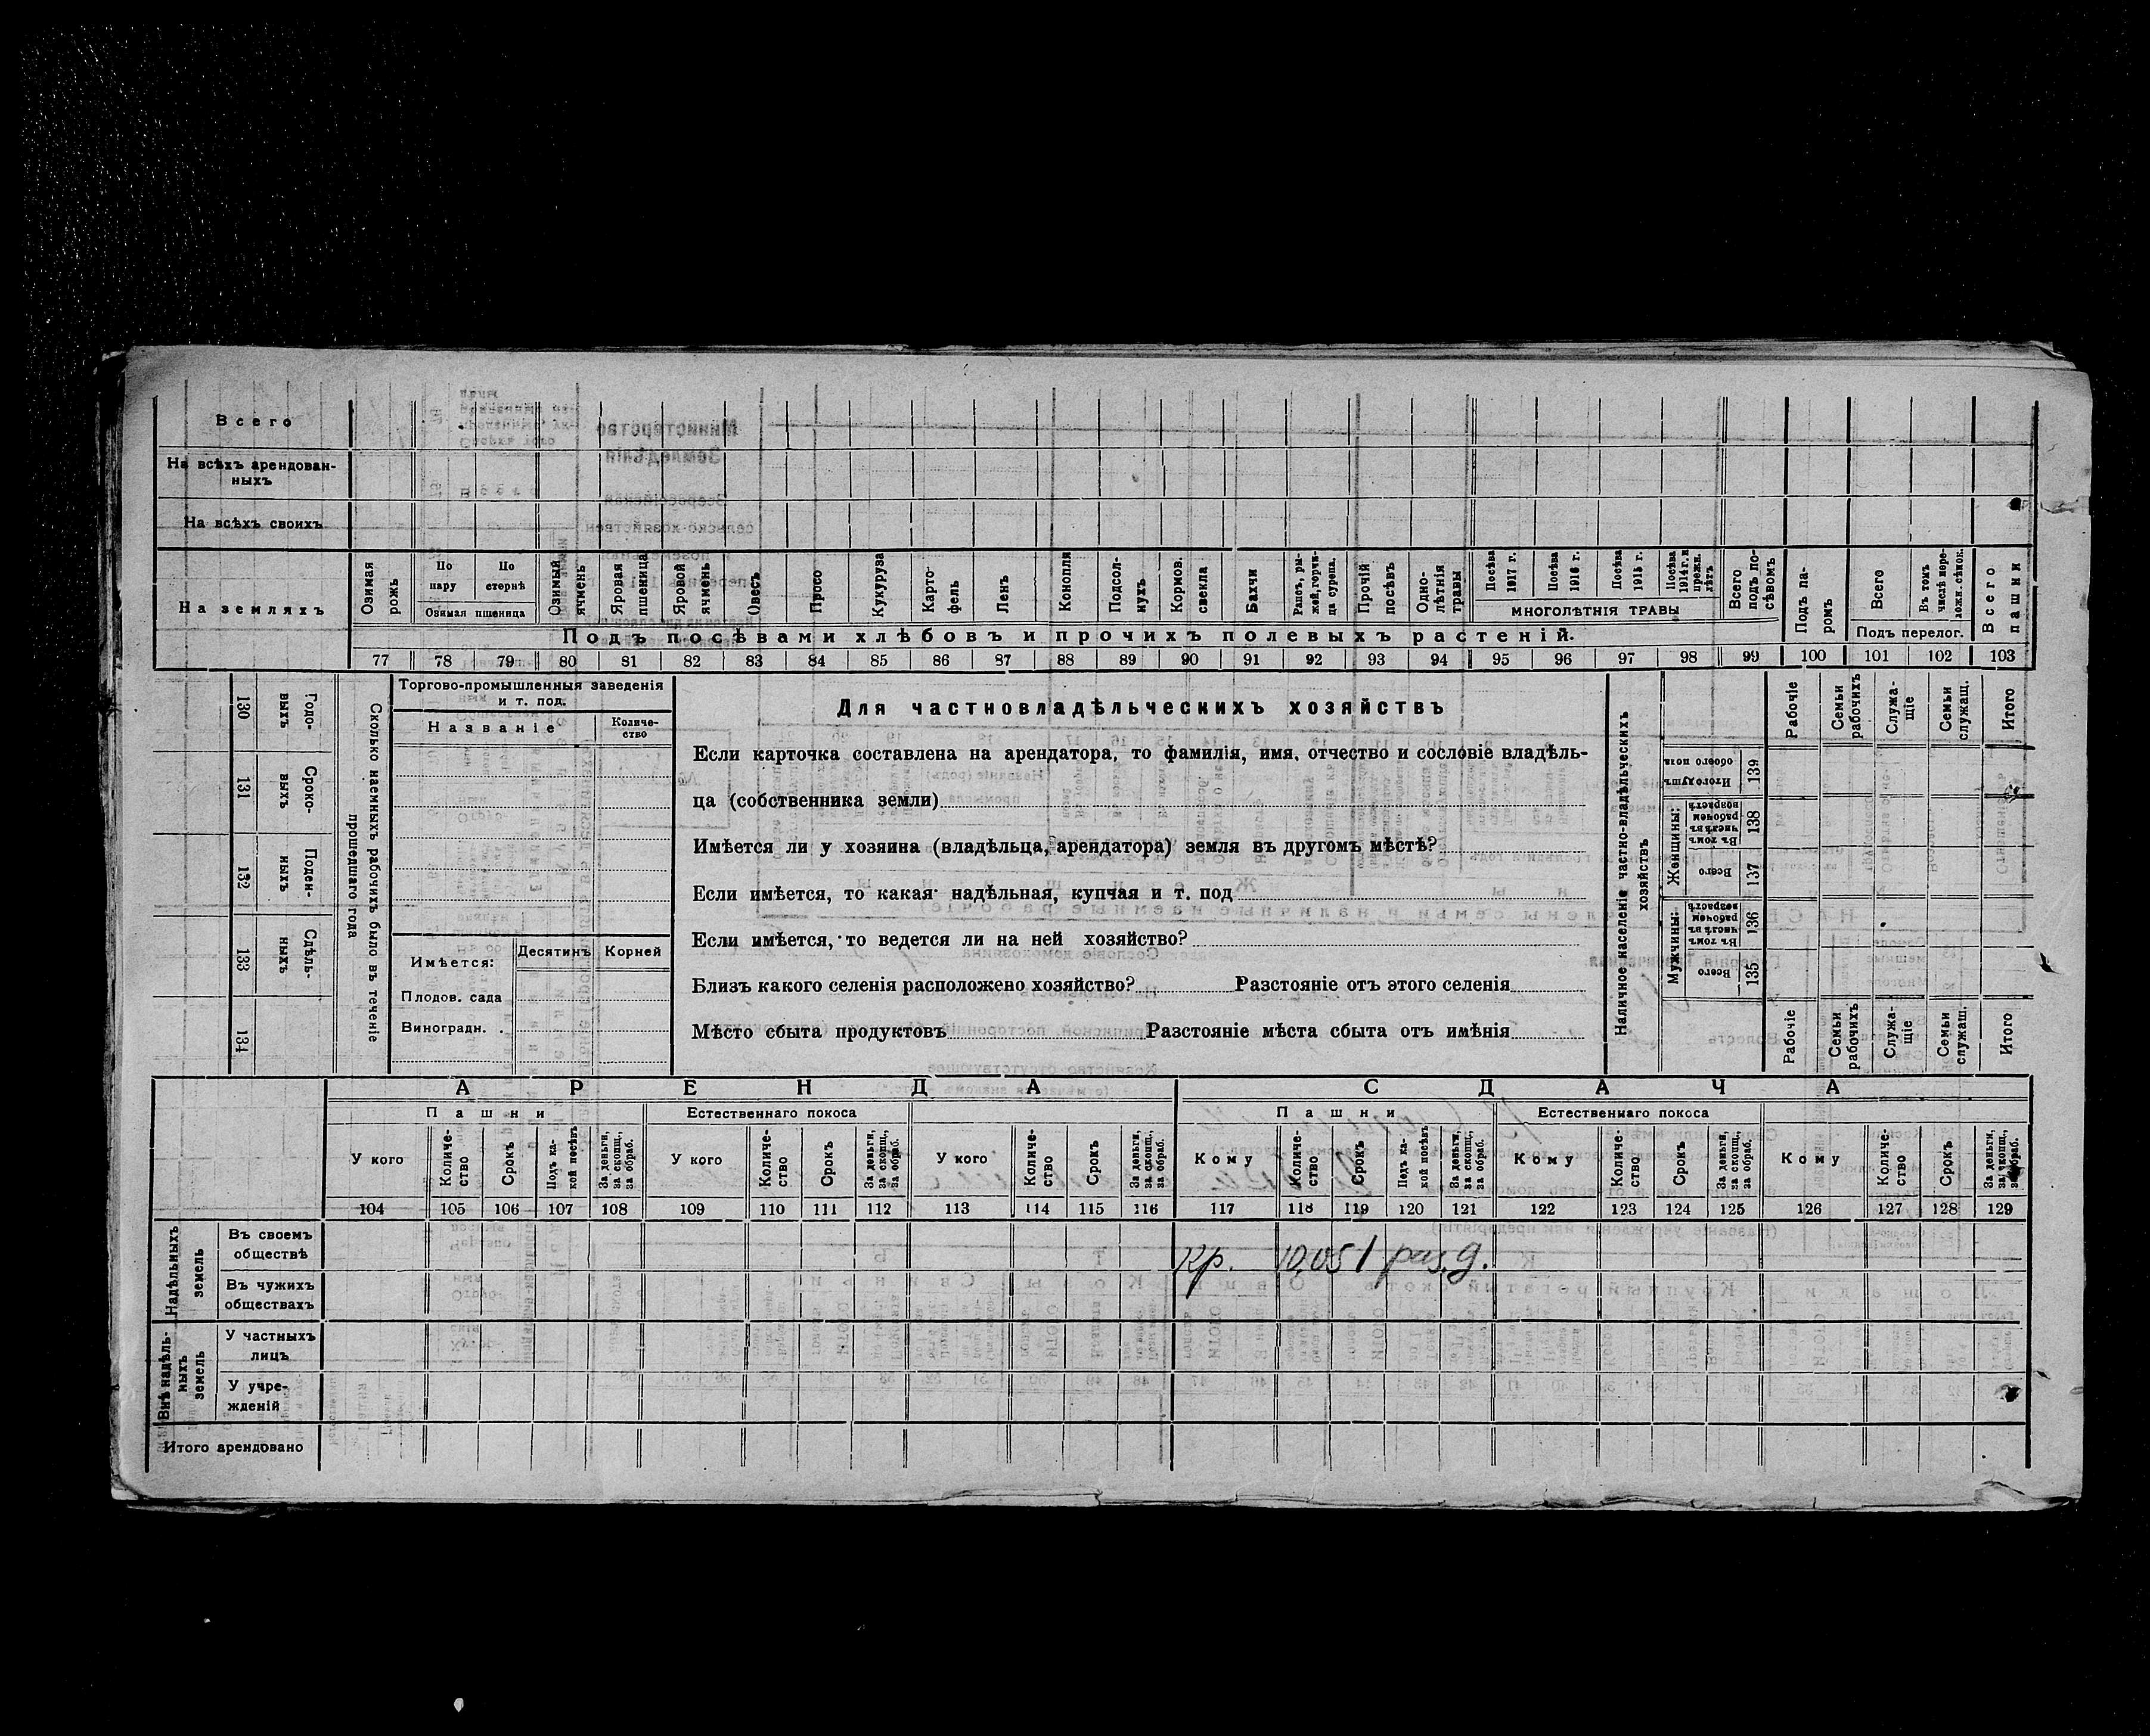 Всего
На всѣхъ арендован-
ныхъ
На всѣхъ своихъ
На земляхъ
Озимая рожь
По пару
По стернѣ
Озимая пшеница
Озимый ячмень
Яровая пшеница
Яровой ячмень
Овесъ
Просо
Кукуруза
Карто-фель
Ленъ
Конопля
Подсол-нухъ
Кормов. свекла
Бахчи
Рапсъ, ры-жей, горчи-ца сурепа.
Прочій посѣвъ
Одно-лѣтнія травы
Посѣва 1917 г.
Посѣва 1916 г.
Посѣва 1915 г.
Посѣва 1914 г. и прежн. лѣтъ
МНОГОЛѢТНІЯ ТРАВЫ
Всего подъ по-сѣвомъ
Подъ па-ромъ
Всего
Въ томъ числѣ пере-ложн. сѣнок.
Подъ перелог.
Всего пашни
Подъ посѣвами хлѣбовъ и прочихъ полевыхъ растеній.
77 78 79 80 81 82 83 84 85 86 87 88 89 90 91 92 93 94 95 96 97 98 99 100 101 102 103
130 Годо-выхъ
131 Сроко-выхъ
132 Поден-ныхъ
133 Сдѣль-ныхъ
134
Сколько наемныхъ рабочихъ было въ теченіе
прошедшаго года
Торгово-промышленныя заведенія
и т. под.
Названіе
Количе-
ство
Имѣется:
Десятинъ
Корней
Плодов. сада
Виноградн. .
Для частновладѣльческихъ хозяйствъ
Если карточка составлена на арендатора, то фамилія, имя, отчество и сословіе владѣль-
ца (собственника земли)
Имѣется ли у хозяина (владѣльца, арендатора) земля въ другомъ мѣстѣ?
Если имѣется, то какая: надѣльная, купчая и т. под
Если имѣется, то ведется ли на ней хозяйство?
Близъ какого селенія расположено хозяйство? Разстояніе отъ этого селенія
Мѣсто сбыта продуктовъ Разстояніе мѣста сбыта отъ имѣнія
Наличное населеніе частно-владѣльческихъ
хозяйствъ
Рабочіе
Семьи рабочихъ
Служа-щіе
Семьи служащ.
Итого
Итого душъ обоего пола 139
Женщины:
Въ томъ числѣ въ рабочемъ возрастѣ 138
Всего 137
Мужчины:
Въ томъ числѣ въ рабочемъ возрастѣ 136
Всего 135
Рабочіе
Семьи рабочихъ
Служа-щіе
Семьи служащ.
Итого
АРЕНДА
СДАЧА
Пашни
Естественнаго покоса
Пашни
Естественнаго покоса
У кого
Количе-ство
Срокъ
Подъ ка-кой посѣвъ
За деньги, за скопщ., за обраб.
У кого
Количе-ство
Срокъ
За деньги, за скопщ., за обраб.
У кого
Количе-ство
Срокъ
За деньги, за скопщ., за обраб.
Кому
Количе-ство
Срокъ
Подъ ка-кой посѣвъ
За деньги, за скопщ., за обраб.
Кому
Количе-ство
Срокъ
За деньги, за скопщ., за обраб.
Кому
Количе-ство
Срокъ
За деньги, за скопщ., за обраб.
104 105 106 107 108 109 110 111 112 113 114 115 116 117 118 119 120 121 122 123 124 125 126 127 128 129
Надѣльныхъ земель
Въ своемъ
обществѣ
Кр. 10,05 1 раз. д.
Въ чужихъ
обществахъ
Внѣ надѣль-ныхъ земель
У частныхъ
лицъ
У учре-
жденій
Итого арендовано